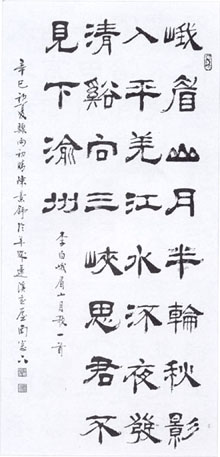 峨眉山月半輪秋影
入平羌江水流夜發
清谿向三峽思君不
見下渝州
李白峨眉山月歌一首
辛巳初夏